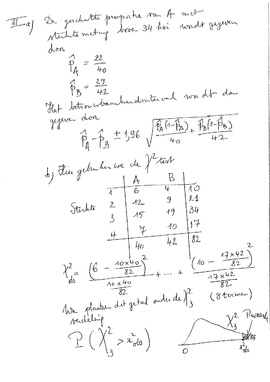 III a) De geschatte proportie van A met
sterkte boven 34 wordt gegeven
door
p̂_A = 22/40
p̂_B = 27/42
Het betrouwbaarheidsinterval wordt dan
gegeven door
p̂_A - p̂_B ± 1,96 √( p̂_A(1-p̂_A)/40 + p̂_B(1-p̂_B)/42 )
b) Hier gebruiken we de χ² test
A B
1 6 4 10
2 12 9 21
Sterkte
3 15 19 34
4 7 10 17
40 42 82
χ²_obs = (6 - 10×40/82)² / (10×40/82) + ... + (10 - 17×42/82)² / (17×42/82)
We plaatsen dit getal onder de χ²_3 (8 termen)
verdeling
P(χ²_3 > χ²_obs)
χ²_3
0
χ²_obs